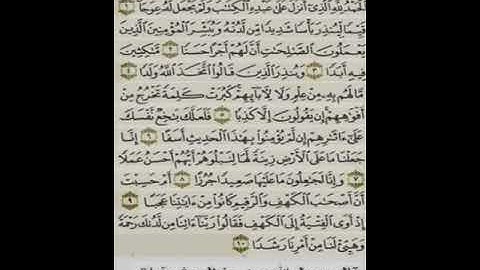 الْحَمْدُ لِلَّهِ الَّذِي أَنزَلَ عَلَىٰ عَبْدِهِ الْكِتَابَ وَلَمْ يَجْعَل لَّهُ عِوَجًا ۜ ١
قَيِّمًا لِّيُنذِرَ بَأْسًا شَدِيدًا مِّن لَّدُنْهُ وَيُبَشِّرَ الْمُؤْمِنِينَ الَّذِينَ
يَعْمَلُونَ الصَّالِحَاتِ أَنَّ لَهُمْ أَجْرًا حَسَنًا ٢ مَّاكِثِينَ
فِيهِ أَبَدًا ٣ وَيُنذِرَ الَّذِينَ قَالُوا اتَّخَذَ اللَّهُ وَلَدًا ٤
مَّا لَهُم بِهِ مِنْ عِلْمٍ وَلَا لِآبَائِهِمْ كَبُرَتْ كَلِمَةً تَخْرُجُ مِنْ
أَفْوَاهِهِمْ إِن يَقُولُونَ إِلَّا كَذِبًا ٥ فَلَعَلَّكَ بَاخِعٌ نَّفْسَكَ
عَلَىٰ آثَارِهِمْ إِن لَّمْ يُؤْمِنُوا بِهَٰذَا الْحَدِيثِ أَسَفًا ٦ إِنَّا
جَعَلْنَا مَا عَلَى الْأَرْضِ زِينَةً لَّهَا لِنَبْلُوَهُمْ أَيُّهُمْ أَحْسَنُ عَمَلًا
٧ وَإِنَّا لَجَاعِلُونَ مَا عَلَيْهَا صَعِيدًا جُرُزًا ٨ أَمْ حَسِبْتَ
أَنَّ أَصْحَابَ الْكَهْفِ وَالرَّقِيمِ كَانُوا مِنْ آيَاتِنَا عَجَبًا ٩
إِذْ أَوَى الْفِتْيَةُ إِلَى الْكَهْفِ فَقَالُوا رَبَّنَا آتِنَا مِن لَّدُنكَ رَحْمَةً
وَهَيِّئْ لَنَا مِنْ أَمْرِنَا رَشَدًا ١٠